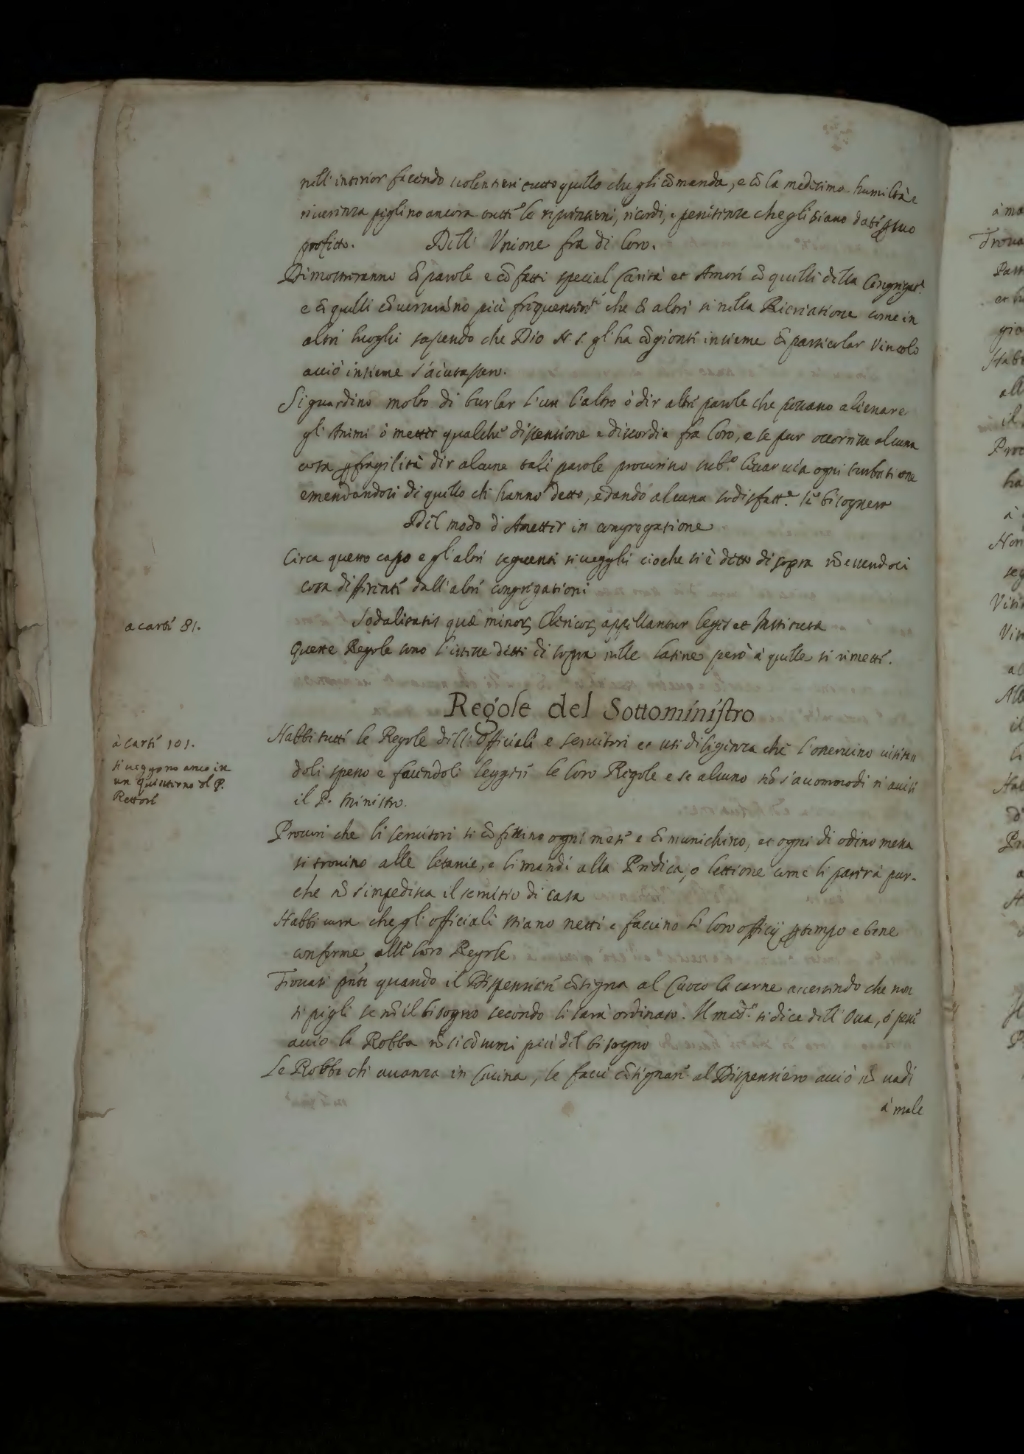 nell'interior facendo volentieri tutto quello che gli cōmanda, e cō la medesima humiltà e
riverenza piglino ancora tutte le riprensioni, ricordi, e penitenze che gli siano dati p suo
profitto. Dell'Unione fra di loro.
Dimostreranno cō parole e cō fatti special Carità et Amore cō quelli della Congregat.e
e cō quelli cōverseranno più frequentemte che cō altri si nella Ricreatione come in
altri luoghi sapendo che Dio N. S. gl'ha cōgionti insieme cō particolar Vincolo
acciò insieme s'aiutassero.
Si guardino molto di burlar l'un l'altro ò dir altre parole che possano alienare
gli Animi ò metter qualche dissensione e discordia fra loro, e se pur occorresse alcuna
cosa p fragilità dir alcune tali parole procurino sub.o levar via ogni turbatione
emendandosi di quello che hanno detto, e dando alcuna sodisfatt.e se bisognera
Del modo d'Ametter in congregatione
Circa questo capo e gl'altri seguenti si vegghi ciò che si è detto di sopra nō essendoci
cosa differente dall'altre congregationi
a carte 81.
Sodalitatis quæ minor, Clericor, appellantur leges et Instituta
Queste Regole sono l'istesse dette di sopra nelle latine però à quelle si rimette.
Regole del Sottoministro
à carte 101.
si veggono anco in
un quinterno del P.
Rettore
Habbi tutte le Regole dell'Officiali e servitori et usi diligenza che l'osservino visitan
doli spesso e facendoli leggere le loro Regole e se alcuno nō s'accommodi n'avisi
il P. Ministro.
Procuri che li servitori si cōfessino ogni mese e cōmunichino, et ogni dì odino messa
si trovino alle letanie, e li mandi alla Predica, o lettione come li parerà pur-
che nō s'impedisca il servitio di casa
Habbi cura che gl'officiali stiano netti e faccino li loro officij p tempo e bene
conforme alle loro Regole
Trovasi pñte quando il Dispensier cōsigna al Cuoco la carne avvertendo che non
si pigli se nō il bisogno secondo li sarà ordinato. Il med.o si dice dell'Ova, ò pesce
acciò la Robba nō si cōsumi più del bisogno
Le Robbe che avanza in Cucina, le facci cōsignare al Dispensiero acciò nō vadi
à male